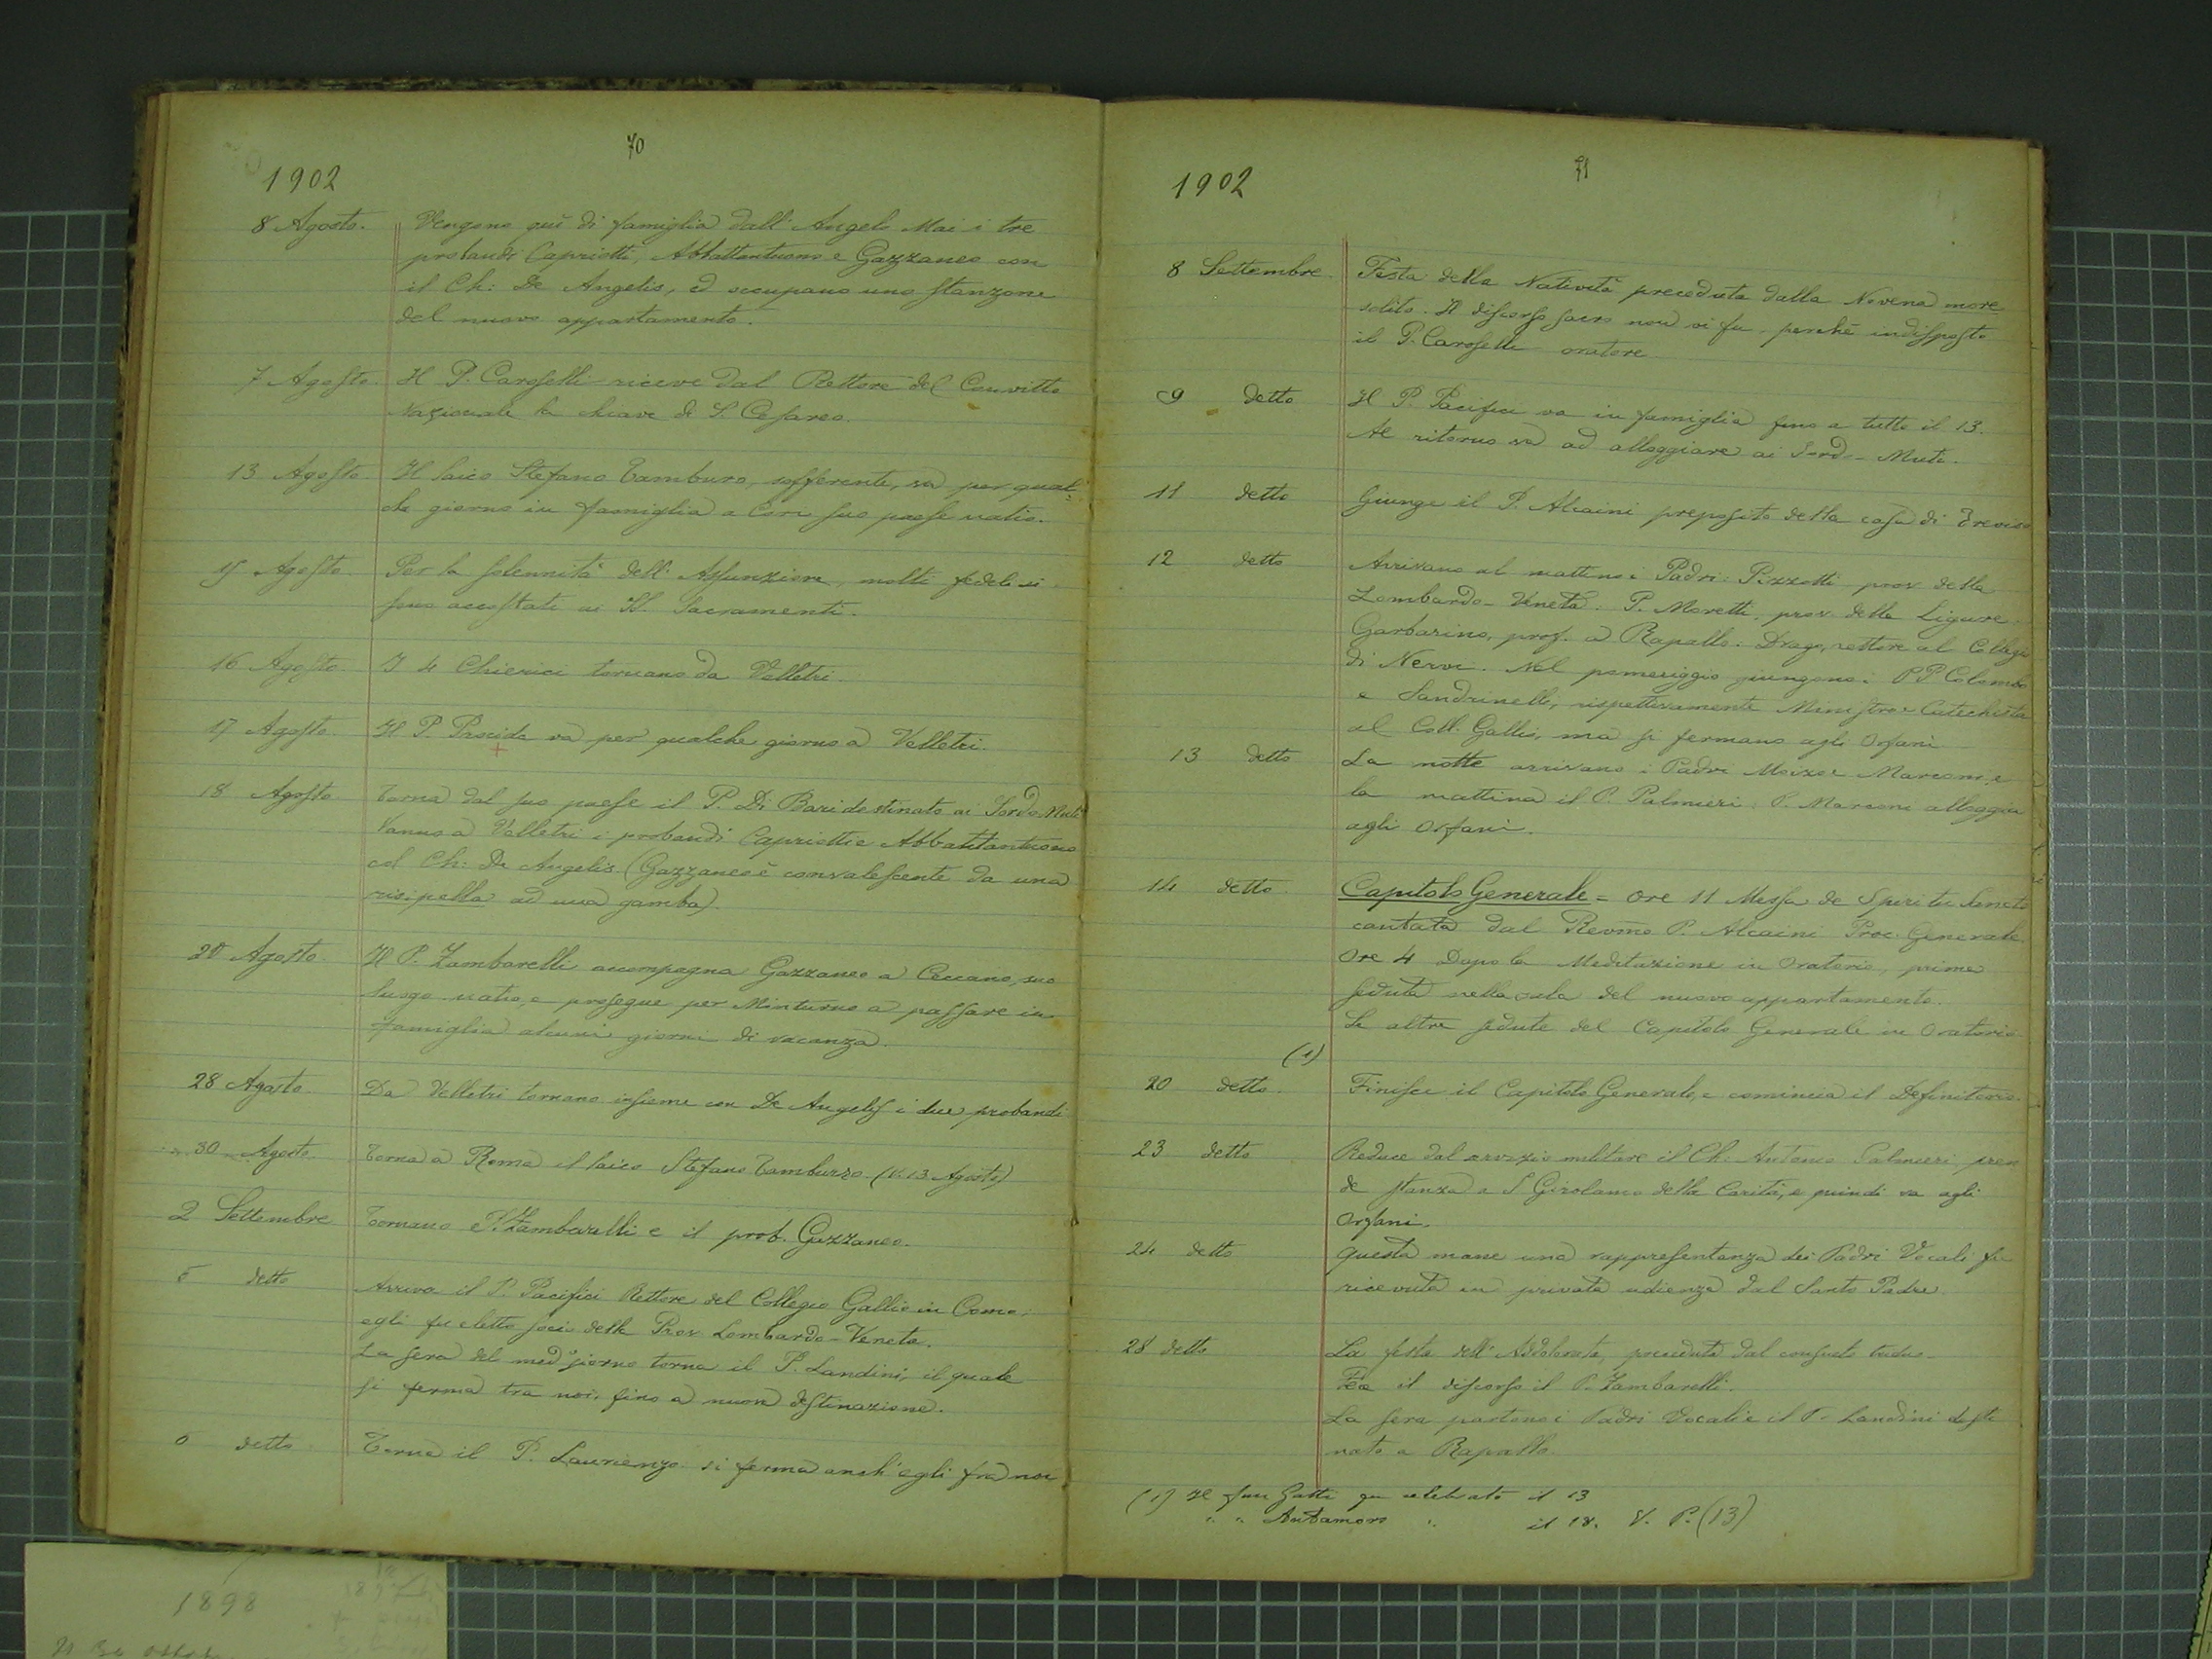 70
1902
8 Agosto. Vengono quì di famiglia dall'Angelo Mai i tre
probandi Capriotti, Abbattantuono e Gazzaneo con
il Ch: De Angelis, ed occupano uno stanzone
del nuovo appartamento.
7 Agosto. Il P. Caroselli riceve dal Rettore del Convitto
Nazionale la chiave di S. Cesareo.
13 Agosto. Il laico Stefano Tamburo, sofferente, va per qual=
che giorno in famiglia a Cori suo paese natio.
15 Agosto. Per la solennità dell'Assunzione, molti fedeli si
sono accostati ai SS. Sacramenti.
16 Agosto. I 4 Chierici tornano da Velletri.
17 Agosto. Il P. Procida va per qualche giorno a Velletri.
18 Agosto Torna dal suo paese il P. Di Bari destinato ai Sordo-Muti
Vanno a Velletri i probandi Capriotti e Abbattantuono
col Ch: De Angelis (Gazzaneo è convalescente da una
risipella ad una gamba).
20 Agosto. Il P. Zambarelli accompagna Gazzaneo a Ceccano, suo
luogo natio, e prosegue per Minturno a passare in
famiglia alcuni giorni di vacanza.
28 Agosto. Da Velletri tornano insieme con De Angelis i due probandi
30 Agosto. Torna a Roma il laico Stefano Tamburro (V. 13 Agosto)
2 Settembre Tornano P. Zambarelli e il prob. Gazzaneo.
5 detto Arriva il P. Pacifici Rettore del Collegio Gallio in Como;
egli fu eletto socio della Prov. Lombardo-Veneta.
La sera del med° giorno torna il P. Landini, il quale
si ferma tra noi, fino a nuova destinazione.
6 detto Torna il P. Laurienzo si ferma anch'egli fra noi
71
1902
8 Settembre. Festa della Natività preceduta dalla Novena more
solito. Il discorso sacro non vi fu, perchè indisposto
il P. Caroselli oratore
9 detto Il P. Pacifici va in famiglia fino a tutto il 13.
Al ritorno va ad alloggiare ai Sordo-Muti.
11 detto Giunge il P. Alcaini preposito della casa di Treviso
12 detto Arrivano al mattino i Padri: Pizzotti prov. della
Lombardo-Veneta. P. Moretti, prov. della Ligure.
Garbarino, prof. a Rapallo. Drago, rettore al Collegio
di Nervi. Nel pomeriggio giungono i PP. Colombo
e Sandrinelli, rispettivamente Ministro e Catechista
al Coll. Gallio, ma si fermano agli Orfani
13 detto La notte arrivano i Padri Moizo e Marconi e
la mattina il P. Palmieri. P. Marconi alloggia
agli Orfani.
14 detto. Capitolo Generale = Ore 11 Messa de Spiritu Sancto
cantata dal Revmo P. Alcaini Proc. Generale
Ore 4 Dopo la Meditazione in Oratorio, prima
seduta nella sala del nuovo appartamento.
Le altre sedute del Capitolo Generale in Oratorio
(1)
20 detto. Finisce il Capitolo Generale, e comincia il Definitorio.
23 detto Reduce dal servizio militare il Ch: Antonio Palmieri pren
de stanza a S. Girolamo della Carità, e quindi va agli
Orfani.
24 detto Questa mane una rappresentanza dei Padri Vocali fu
ricevuta in privata udienza dal Santo Padre.
28 detto La festa dell'Addolorata, preceduta dal consueto triduo.
Fece il discorso il P. Zambarelli.
La sera partono i Padri Vocali e il P. Landini desti
nato a Rapallo.
(1) Il fun Gatti fu celebrato il 13
" " Antamoro " il 18. V. P. (13)
1898